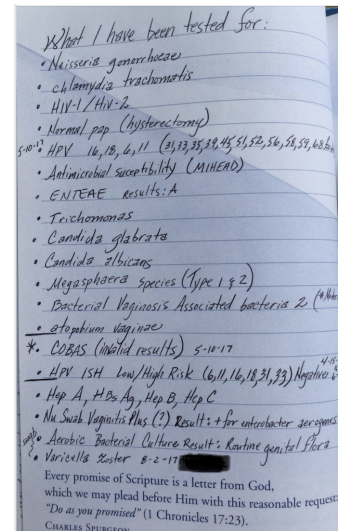 What I have been tested for:
• Neisseria gonorrhoeae
• chlamydia trachomatis
• HIV-1/HIV-2
• Normal pap (hysterectomy)
5-10-17 • HPV 16, 18, 6, 11 (31, 33, 35, 39, 45, 51, 52, 56, 58, 59, 68
• Antimicrobial Susceptibility (MIHEAD)
• ENTEAE Results: A
• Trichomonas
• Candida glabrata
• Candida albicans
• Megasphaera species (Type 1 & 2)
• Bacterial Vaginosis Associated bacteria 2
• atopobium vaginae
*• COBAS (invalid results) 5-10-17
• HPV ISH Low/High Risk (6, 11, 16, 18, 31, 33) Negative 4-15-
• Hep A, HBs Ag, Hep B, Hep C
• Nu Swab Vaginitis Plus (?) Result: + for enterobacter aerogenes
• Aerobic Bacterial Culture Result: Routine genital flora
• Varicella Zoster 8-2-17
Every promise of Scripture is a letter from God,
which we may plead before Him with this reasonable request:
"Do as you promised" (1 Chronicles 17:23).
CHARLES SPURGEON